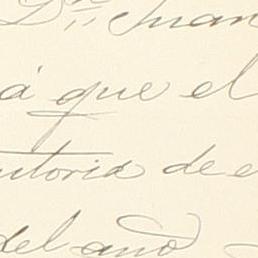 Dn Juan
á que el
utoria de e
del año